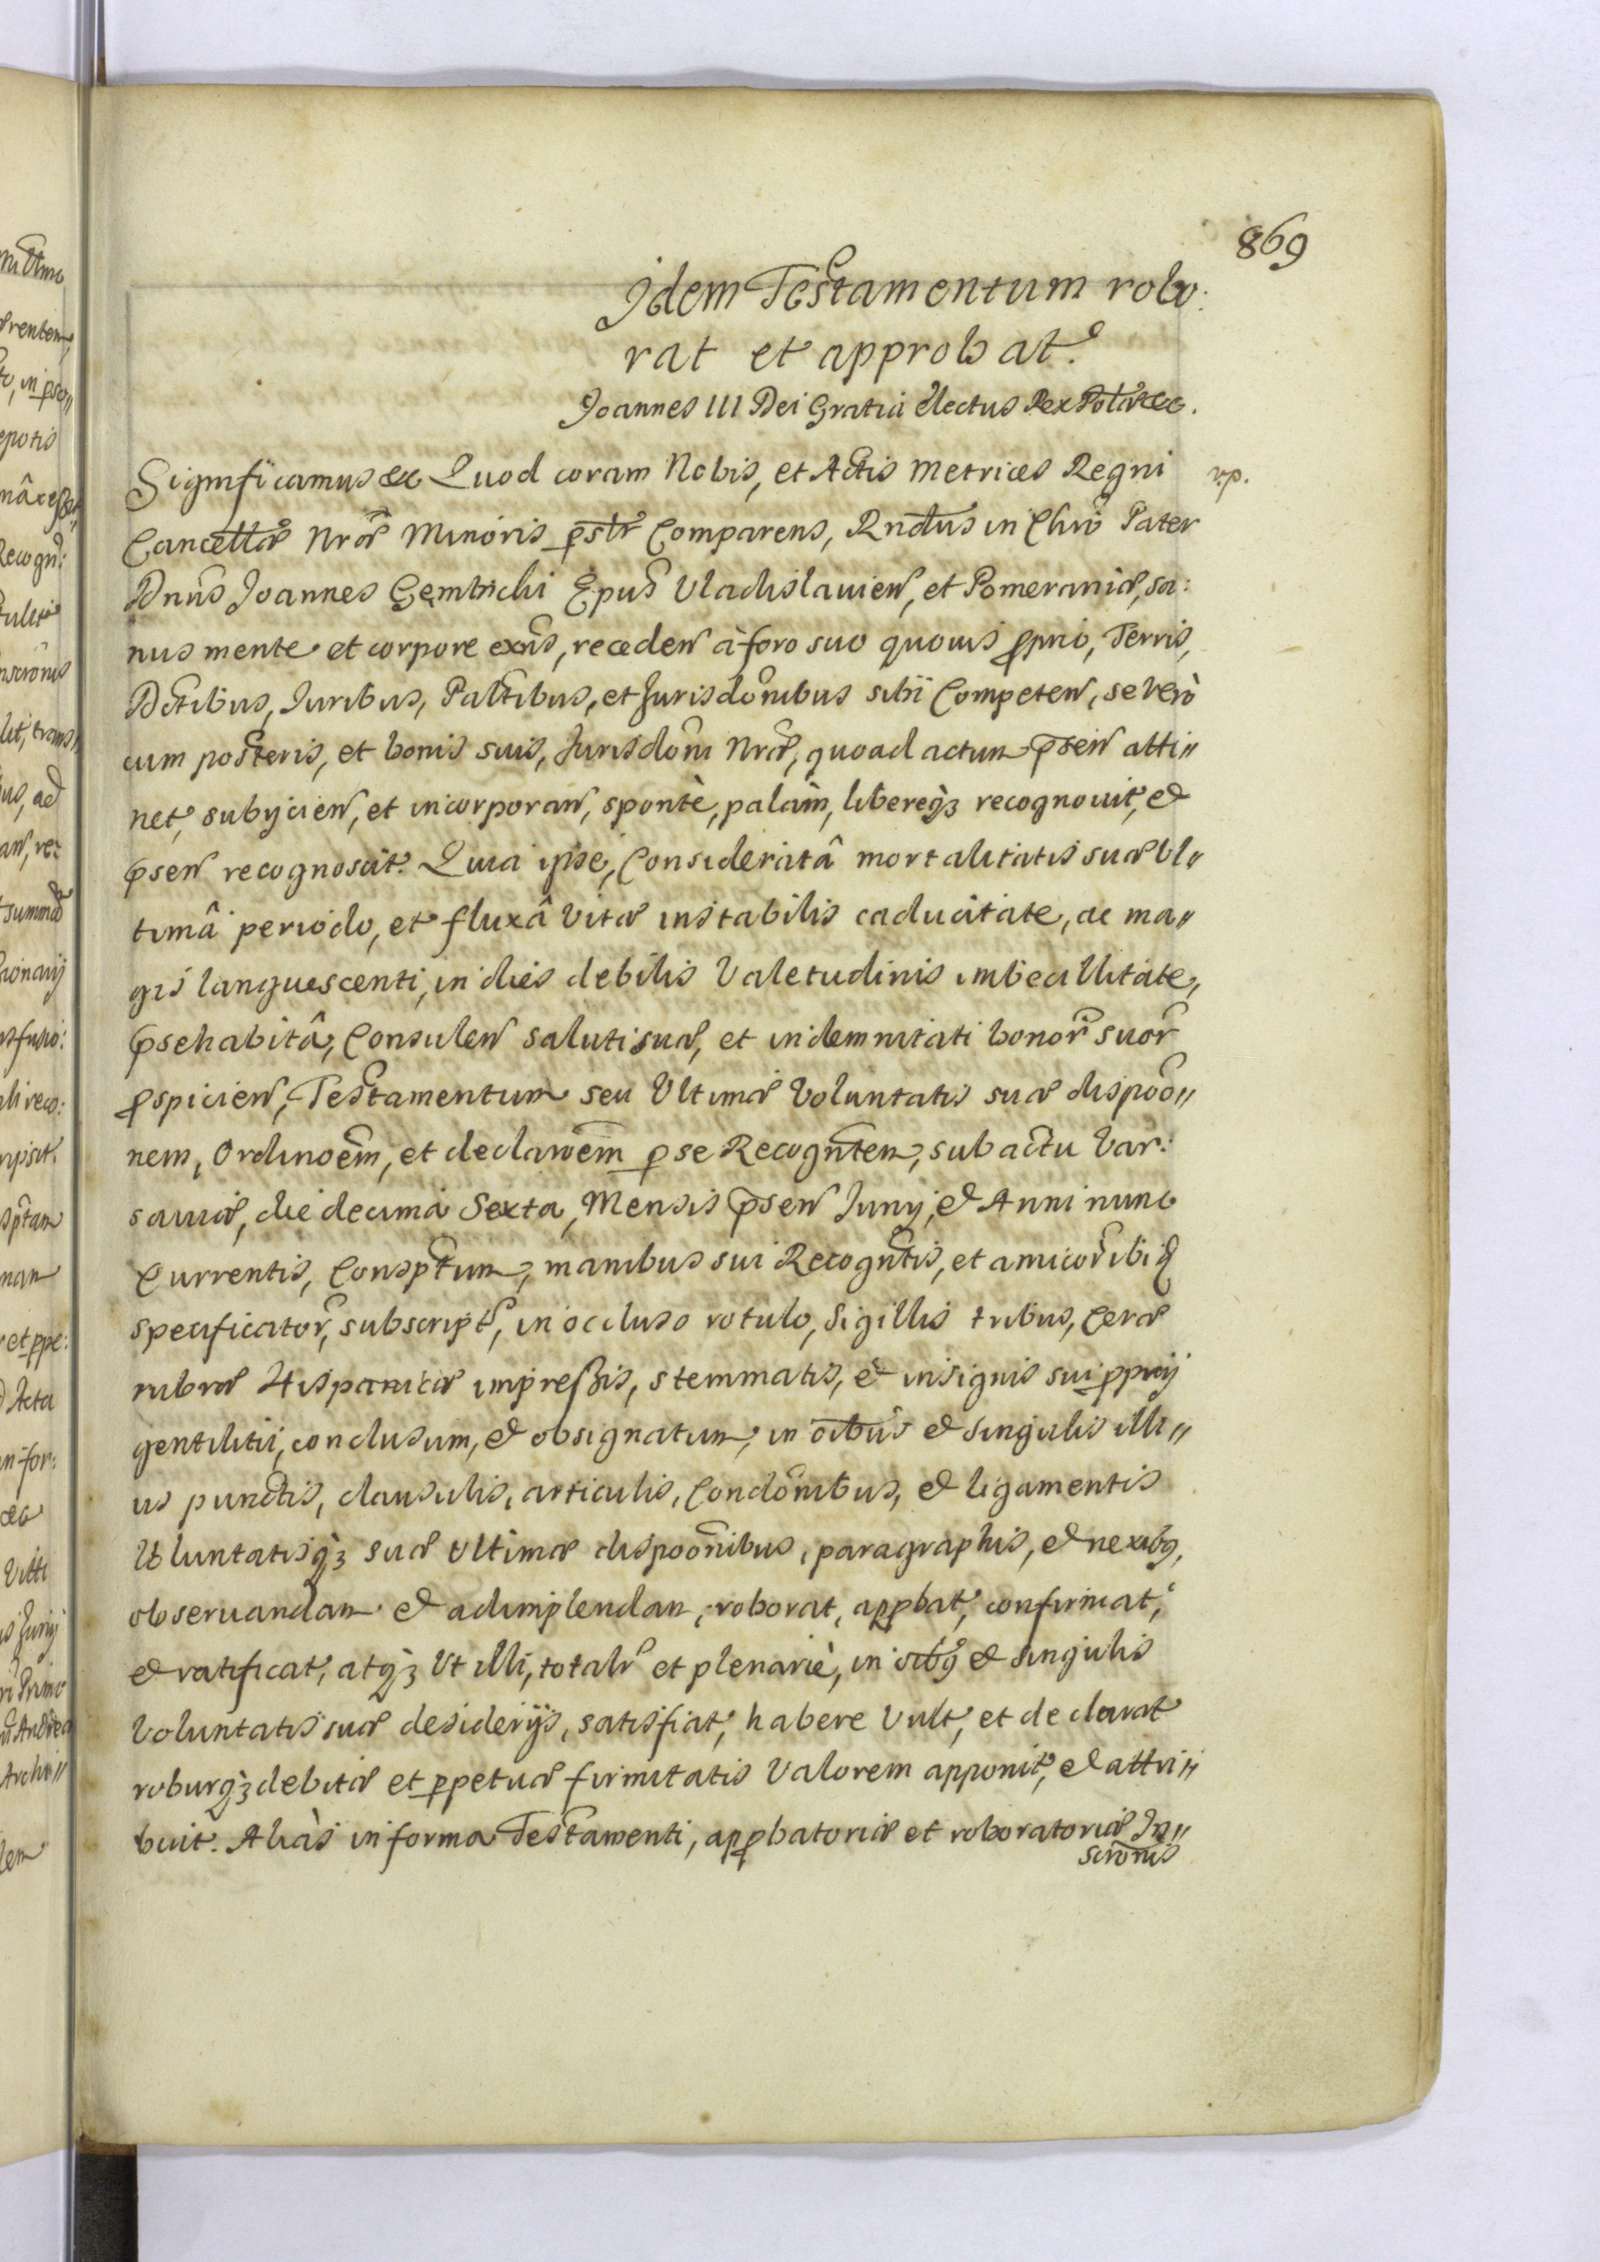 869
Idem Testamentum robo:
rat et approbat.
Joannes III Dei Gratia electus Rex Polae &c.
Significamus &c Quod coram Nobis, et Actis Metrices Regni
v.p.
Cancellae Nrae Minoris pslr Comparens, Rndus in Chro Pater
Dnus Joannes Gembichi Epus Vladislauien, et Pomeraniae, sa:
nus mente et corpore exns, receden à foro suo quouis pprio, Terris,
Dctibus, Juribus, Paltibus, et Jurisdonibus sibi Competen, se verò
cum posteris, et bonis suis, Jurisdoni Nrae, quoad actum psen atti„
net, subijcien, et incorporan, spontè, palàm, libereq3 recognouit, &
psen recognoscit. Quia ipse, Consideratâ mortalitatis suae Vl„
timâ periodo, et fluxâ Vitae instabilis caducitate, ac ma„
gis languescenti, in dies debilis Valetudinis imbecillitate,
psehabitâ, Consulen saluti suae, et indemnitati bonor suor
pspicien, Testamentum seu Ultimae Voluntatis suae dispoo„
nem, Ordinoem, et declaroem p se Recogntem, sub actu Var:
sauiae, die decima Sexta, Mensis psen Junij, & Anni nunc
Currentis, Consptum, manibus sui Recogntis, et amicor ibid
specificator, subscript, in occluso rotulo, Sigillis tribus, Cerae
rubrae Hispanicae impressis, stemmatis, & insignis sui pprij
gentilitii, conclusum, & obsignatum, in oibus & singulis illi„
us punctis, clausulis, articulis, Condonibus, & ligamentis
Voluntatisq3 suae Ultimae dispoonibus, paragraphis, & nexibq,
obseruandam & adimplendam, roborat, appbat, confirmat,
& ratificat, atq3 Ut illi, totalr et plenariè, in oibq & singulis
Voluntatis suae desiderijs, satisfiat, habere Vult, et declarat
roburq3 debitae et ppetuae firmitatis Valorem apponit, & attri„
buit. Aliàs in forma Testamenti, appbatoriae et roboratoriae In„
scronis